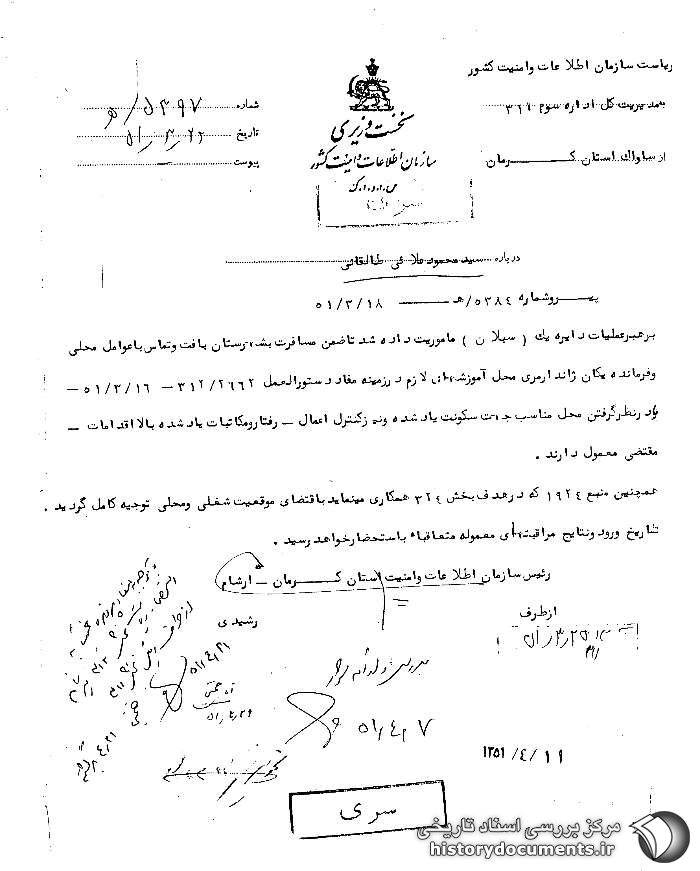 ریاست سازمان اطلاعات وامنیت کشور
بمدیریت کل اداره سوم ۳۱۲
از ساواک استان کرمان
نخست وزیری
سازمان اطلاعات و امنیت کشور
س.ا.و.ا.ک
شماره ۵۳۹۷/ه
تاریخ ۵۱/۳/۲۲
پیوست
درباره سید محمود علائی طالقانی
پیرو شماره ۵۳۸۴/هـ ــ ۵۱/۳/۱۸
برهبر عملیات دایره یک ( سبلان ) ماموریت داده شد تا ضمن مسافرت بشهرستان بافت و تماس با عوامل محلی
وفرمانده یکان ژاندارمری محل آموزشهای لازم در زمینه مفاد دستورالعمل ۳۱۲/۲۶۶۲ – ۵۱/۳/۱۶ –
با در نظر گرفتن محل مناسب جهت سکونت یاد شده ونیز کنترل اعمال – رفتار ومکاتبات یاد شده بالا اقدامات –
مقتضی معمول دارند .
همچنین منبع ۱۹۲۴ که در هدف بخش ۳۲۴ همکاری مینماید باقتضای موقعیت شغلی ومحلی توجیه کامل گردید .
تاریخ ورود ونتایج مراقبتهای معموله متعاقباً باستحضار خواهد رسید .
رئیس سازمان اطلاعات وامنیت استان کرمان – آرشام
از طرف
رشیدی
۵۱/۴/۷
۱۳۵۱/۴/۱۱
سری
مرکز بررسی اسناد تاریخی
historydocuments.ir